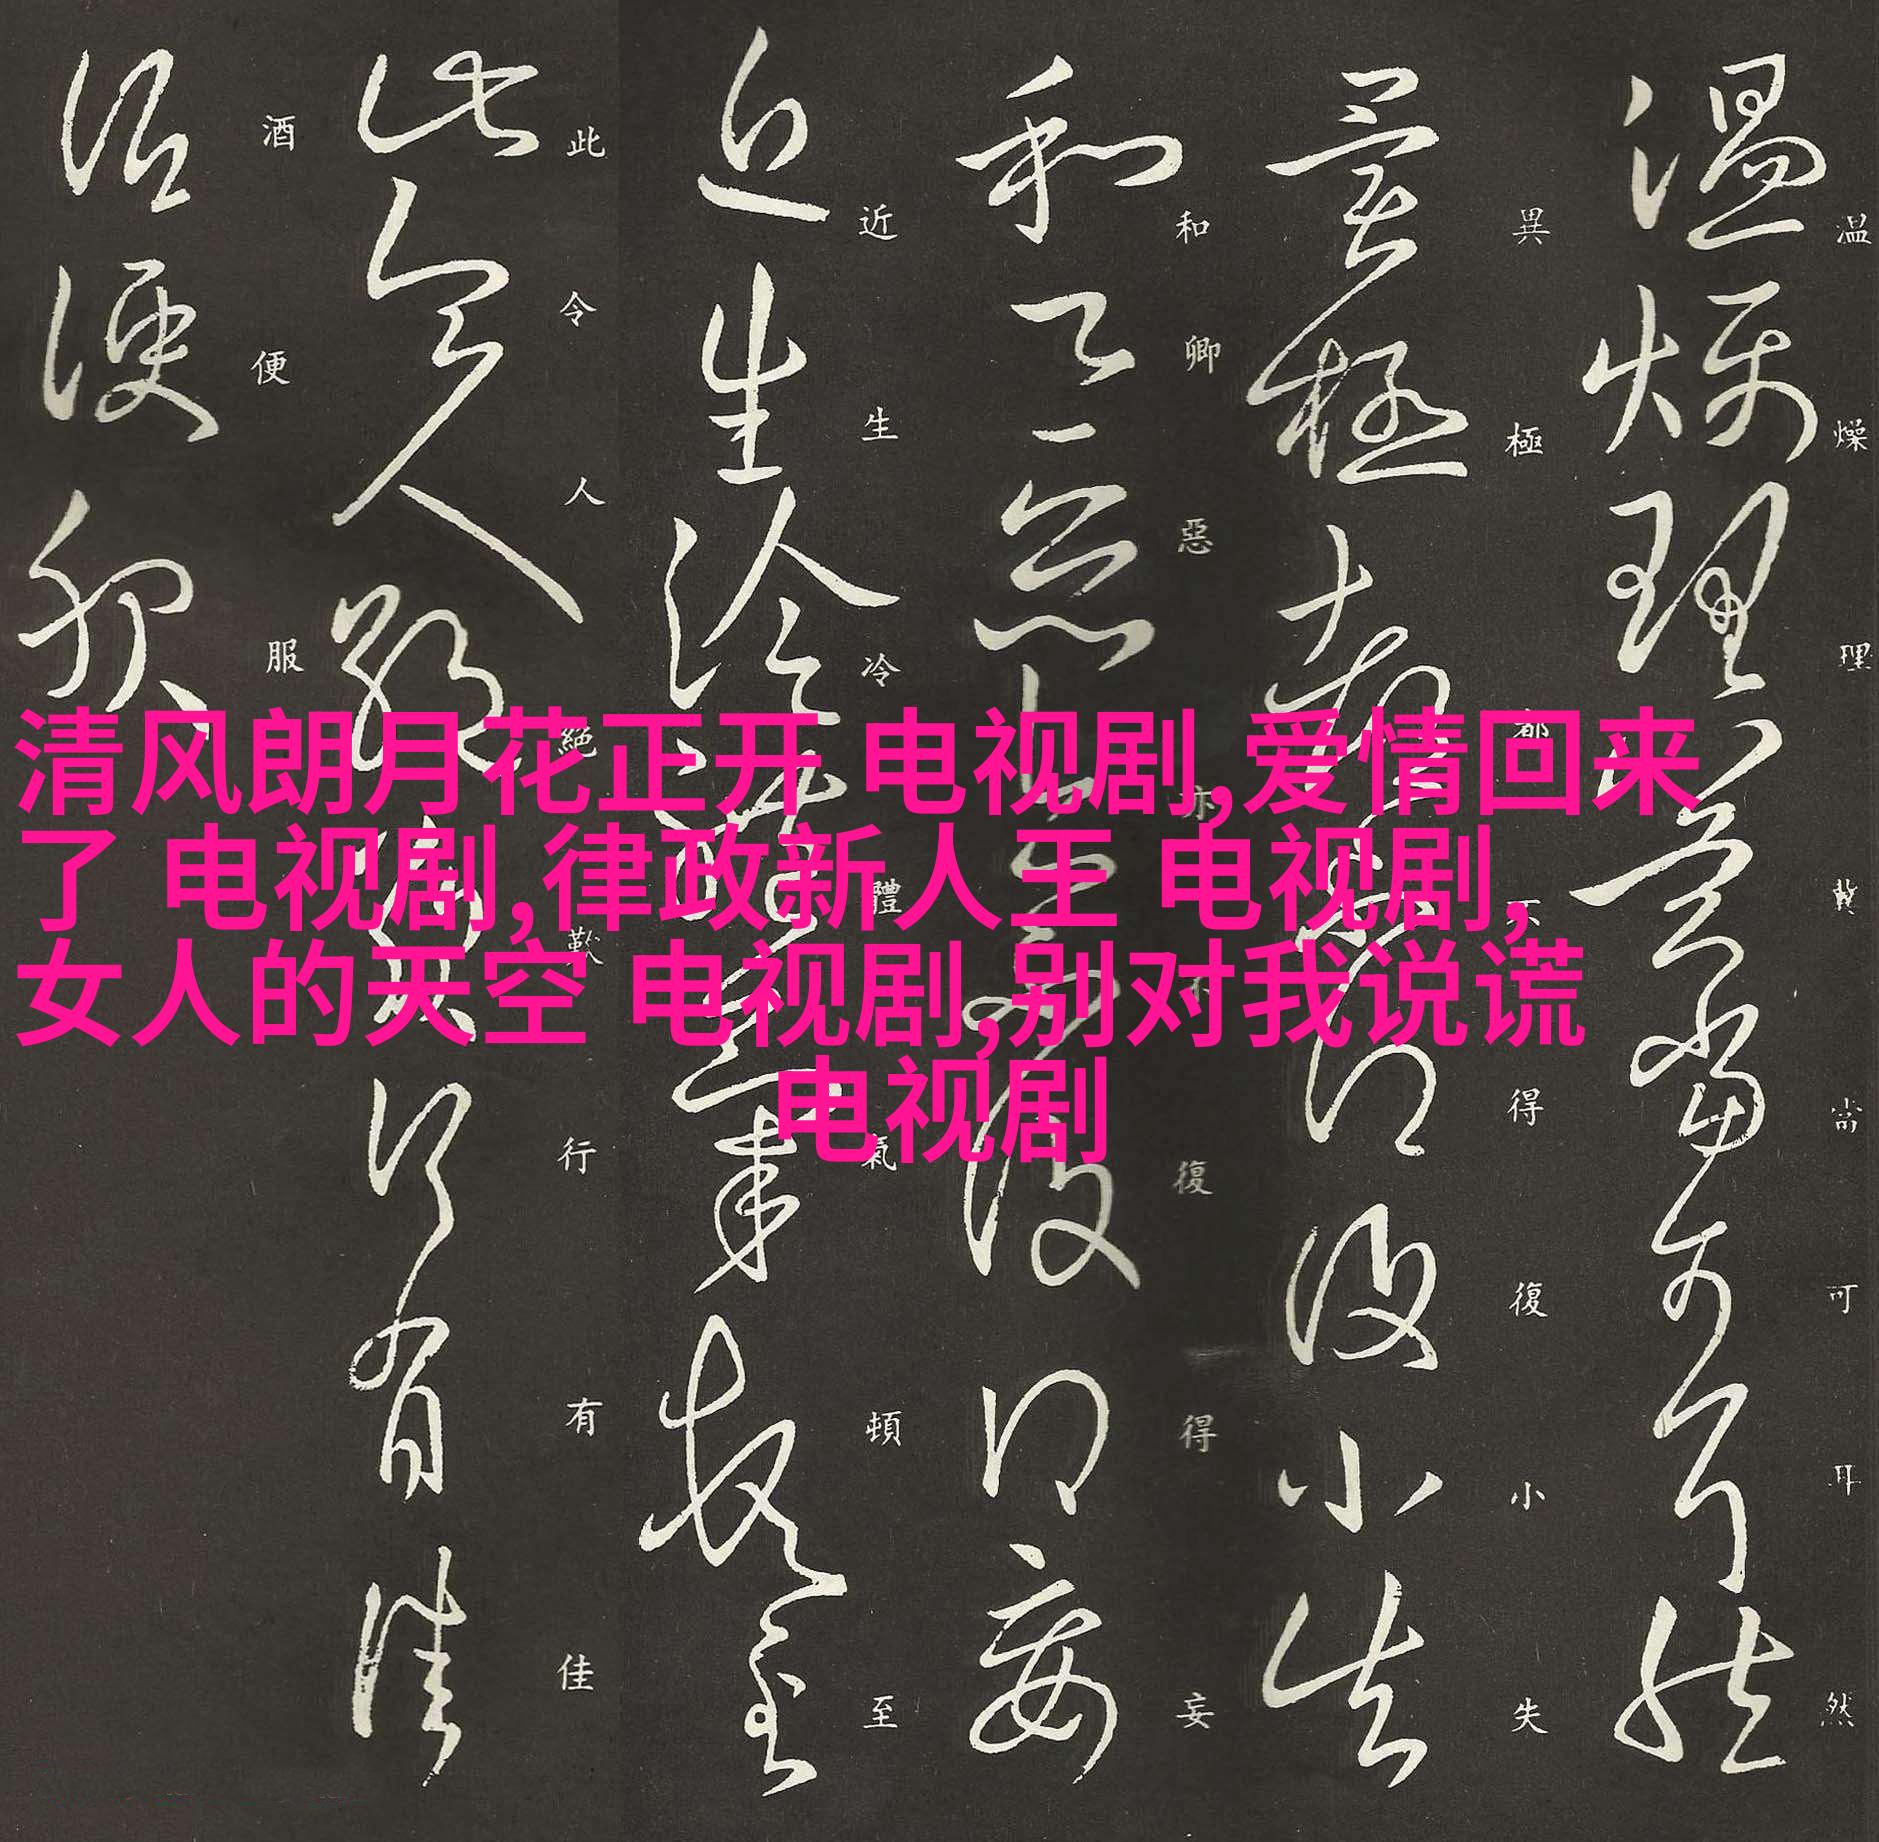 温燥理冀當可耳然
異極都不得復小失
和卿惡亦不復得妄
近生冷體氣頓至
此令人絕歎行有佳
酒便服
清风朗月花正开 电视剧,爱情回来
了 电视剧,律政新人王 电视剧,
女人的天空 电视剧,别对我说谎
电视剧